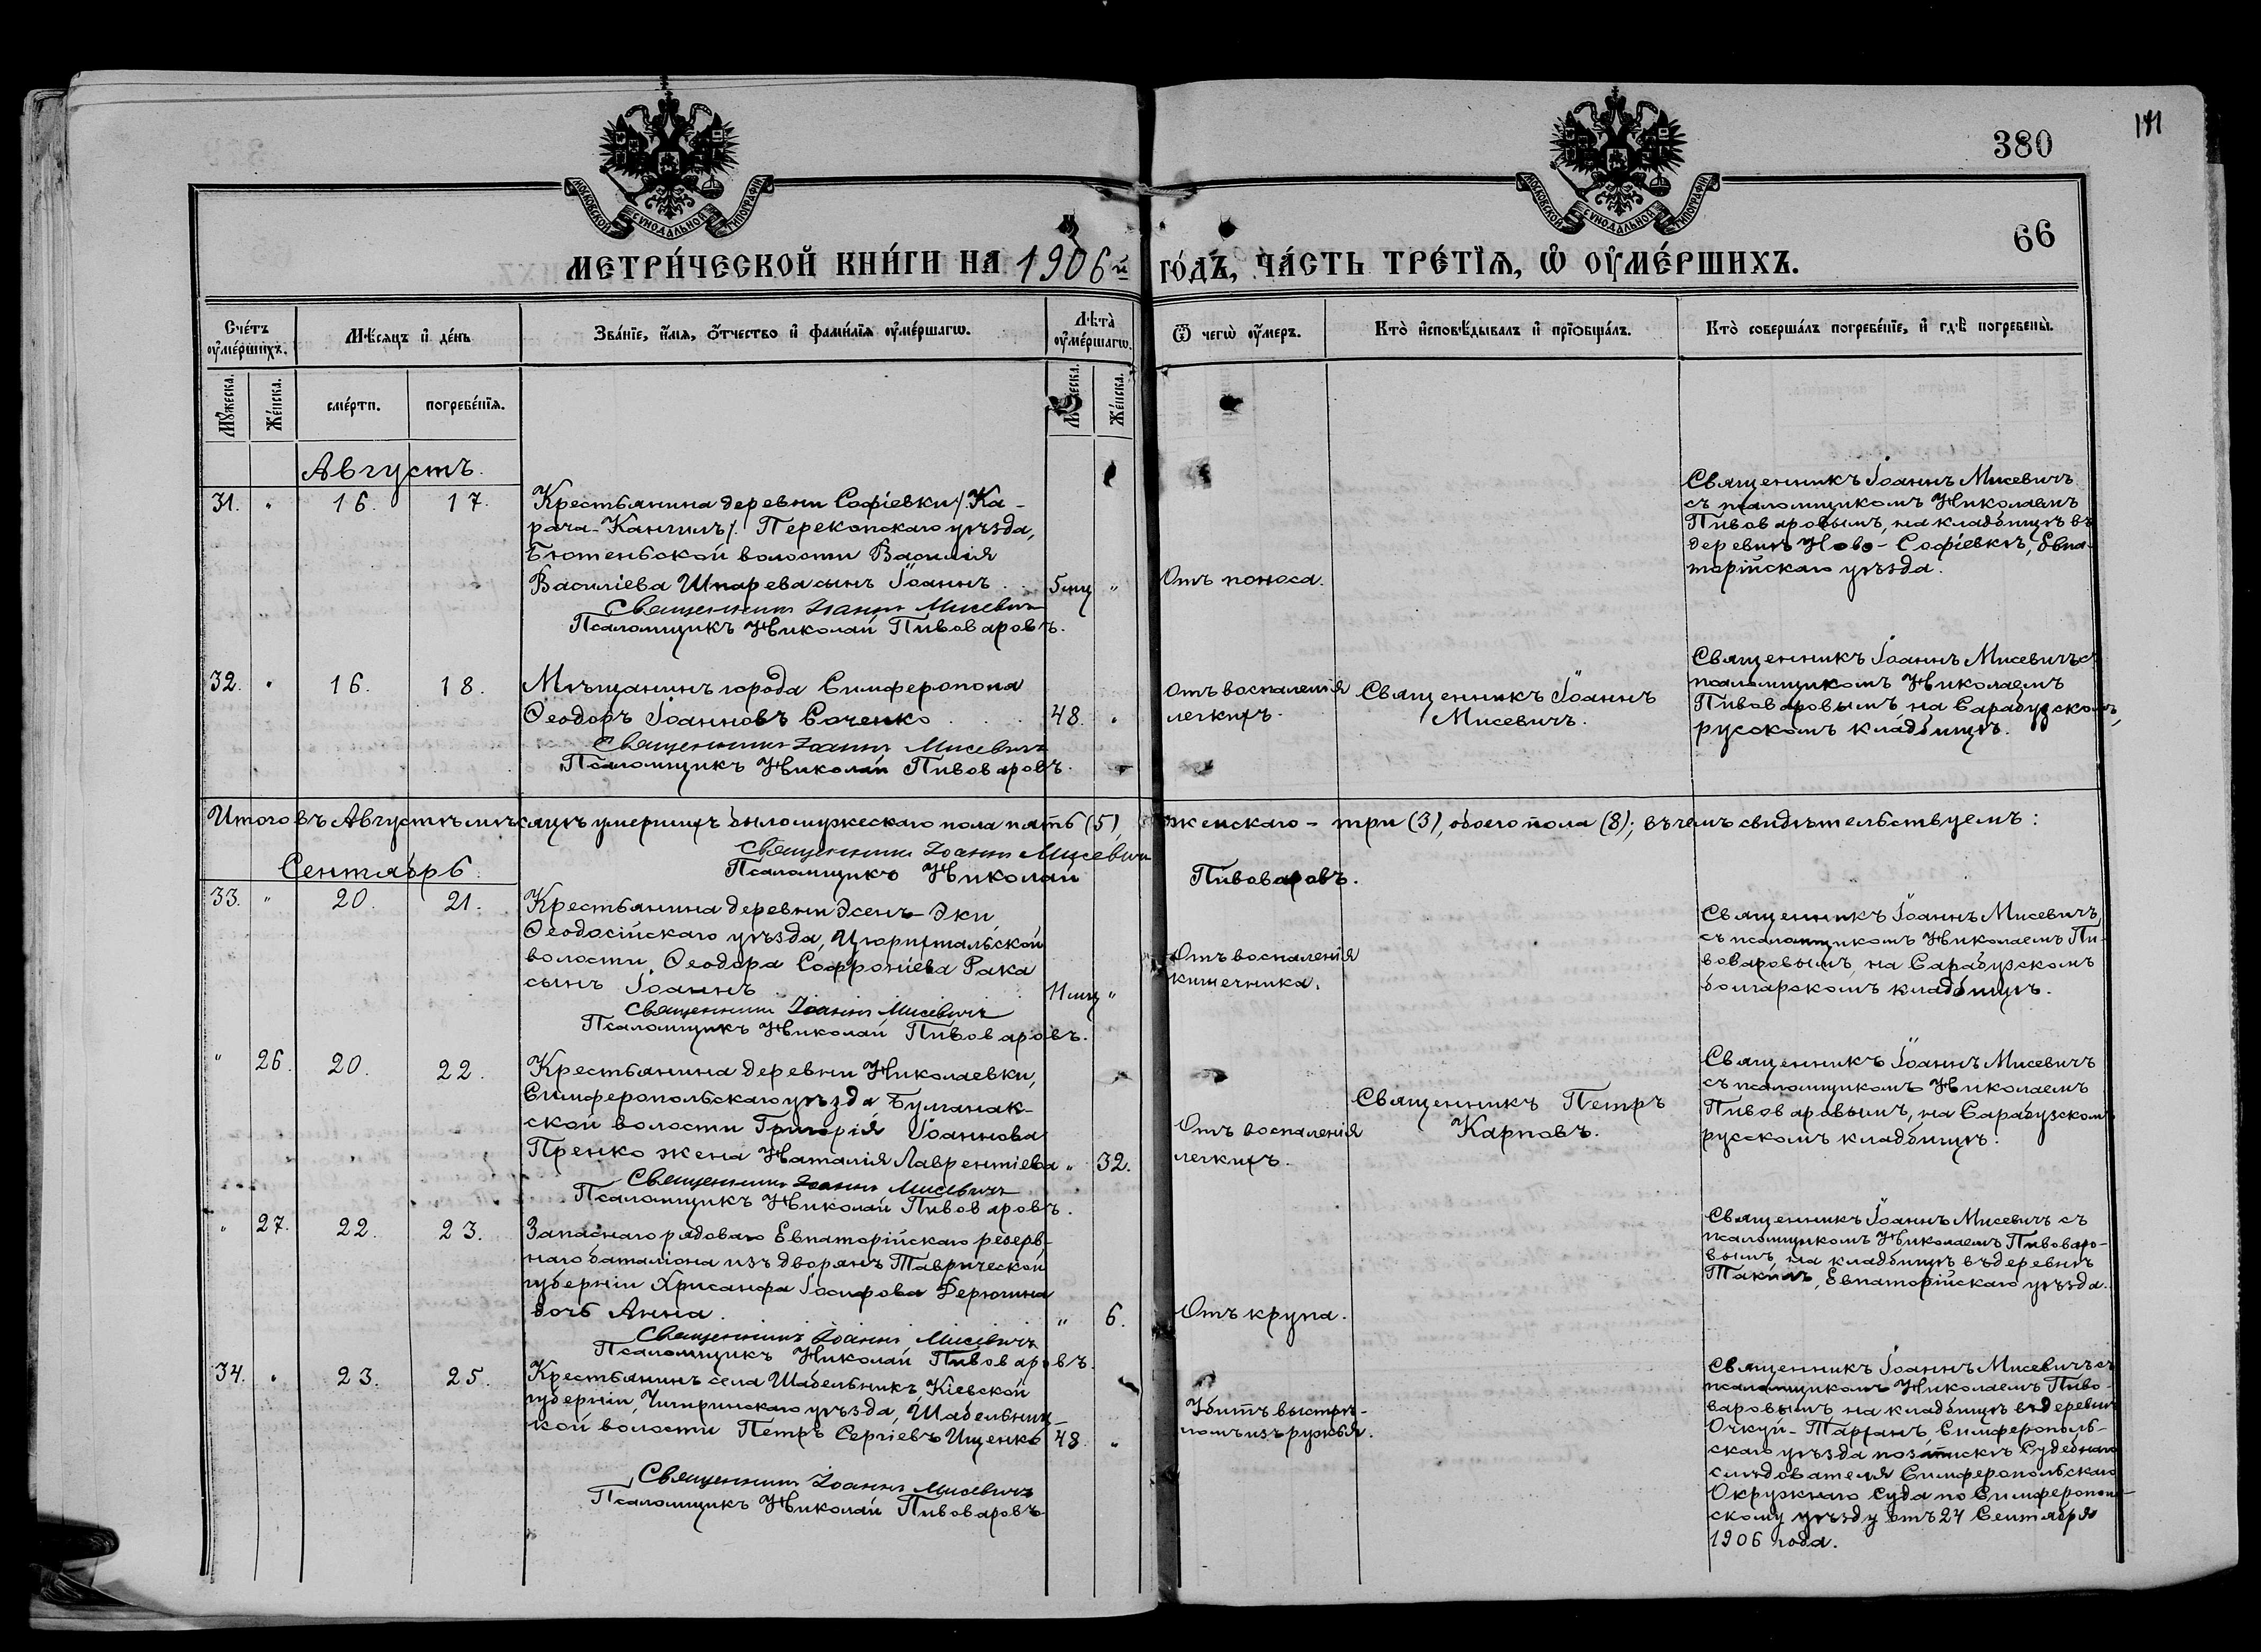 380
141
66
МОСКОВСКОЙ СУНОДАЛЬНОЙ ТИПОГРАФІИ
МОСКОВСКОЙ СУНОДАЛЬНОЙ ТИПОГРАФІИ
МЕТРИ́ЧЕСКОЙ КНИ́ГИ НА 1906й ГО́ДЪ, ЧА́СТЬ ТРЕ́ТІѦ, Ѡ ОУМЕ́РШИХЪ.
Сче́тъ оуме́ршихъ.
Мѣ́сяцъ и де́нь
Зва́нїе, и́мѧ, ѻ́тчество и фами́лїѧ оуме́ршагѡ.
Лѣ́та оуме́ршагѡ.
Ѿ чегѡ̀ оу́меръ.
Кто̀ и҆сповѣ́дывалъ и҆ прїѻбща́лъ.
Кто̀ соверша́лъ погребе́нїе, и҆ гдѣ̀ погребены̀.
Му́жеска.
Же́нска.
сме́рти.
погребе́нїѧ.
Же́нска.
Августъ.
31. " 16. 17.
Крестьянина деревни Софіевки /. Ка-
рача-Кангилъ /. Перекопскаго уѣзда,
Бютеньской волости Василія
Василіева Шпарева сынъ Іоаннъ . . 5 мц "
Священникъ Іоаннъ Мисевичъ
Псаломщикъ Николай Пивоваровъ.
Отъ поноса.
Священникъ Іоаннъ Мисевичъ
съ псаломщикомъ Николаемъ
Пивоваровымъ, на кладбищѣ въ
деревнѣ Ново-Софіевкѣ, Евпа-
торійскаго уѣзда.
32. " 16. 18.
Мѣщанинъ города Симферополя
Ѳеодоръ Іоанновъ Саченко . . 48. "
Священникъ Іоаннъ Мисевичъ
Псаломщикъ Николай Пивоваровъ.
Отъ воспаленія
легкихъ.
Священникъ Іоаннъ
Мисевичъ.
Священникъ Іоаннъ Мисевичъ съ
псаломщикомъ Николаемъ
Пивоваровымъ на Сарабузскомъ,
русскомъ кладбищѣ.
Итого въ Августѣ мѣсяцѣ умершихъ было мужескаго пола пять (5), женскаго - три (3), обоего пола (8); въ чемъ свидѣтельствуемъ:
Священникъ Іоаннъ Мисевичъ
Псаломщикъ Николай Пивоваровъ.
Сентябрь.
33. " 20. 21.
Крестьянина деревни Эсенъ-Эки,
Ѳеодосійскаго уѣзда, Цюрихтальской
волости, Ѳеодора Софроніева Рака
сынъ Іоаннъ 11 мц "
Священникъ Іоаннъ Мисевичъ
Псаломщикъ Николай Пивоваровъ.
Отъ воспаленія
кишечника.
Священникъ Іоаннъ Мисевичъ,
съ псаломщикомъ Николаемъ Пи-
воваровымъ, на Сарабузскомъ
болгарскомъ кладбищѣ.
" 26. 20. 22.
Крестьянина деревни Николаевки,
Симферопольскаго уѣзда Булганак-
ской волости Григорія Іоаннова
Пренко жена Наталія Лаврентіева " 32.
Священникъ Іоаннъ Мисевичъ
Псаломщикъ Николай Пивоваровъ.
Отъ воспаленія
легкихъ.
Священникъ Петръ
Карповъ.
Священникъ Іоаннъ Мисевичъ
съ псаломщикомъ Николаемъ
Пивоваровымъ, на Сарабузскомъ
русскомъ кладбищѣ.
" 27. 22. 23.
Запаснаго рядоваго Евпаторійскаго резерв-
наго баталіона изъ дворянъ Таврической
губерніи Хрисанфа Іосифова Дерюгина
дочь Анна. " 6.
Священникъ Іоаннъ Мисевичъ
Псаломщикъ Николай Пивоваровъ.
Отъ крупа.
Священникъ Іоаннъ Мисевичъ съ
псаломщикомъ Николаемъ Пивоваро-
вымъ, на кладбищѣ въ деревнѣ
Такилъ, Евпаторійскаго уѣзда.
34. " 23. 25.
Крестьянинъ села Шабельникъ, Кіевской
губерніи, Чигиринскаго уѣзда, Шабельниц-
кой волости Петръ Сергіевъ Ищенко 48. "
Священникъ Іоаннъ Мисевичъ
Псаломщикъ Николай Пивоваровъ
Убитъ выстрѣ-
ломъ изъ ружья.
Священникъ Іоаннъ Мисевичъ съ
псаломщикомъ Николаемъ Пиво-
варовымъ, на кладбищѣ въ деревнѣ
Очкуй-Тарханъ, Симферополь-
скаго уѣзда по запискѣ Судебнаго
слѣдователя Симферопольскаго
Окружнаго Суда по Симферополь-
скому уѣзду отъ 24 Сентября
1906 года.